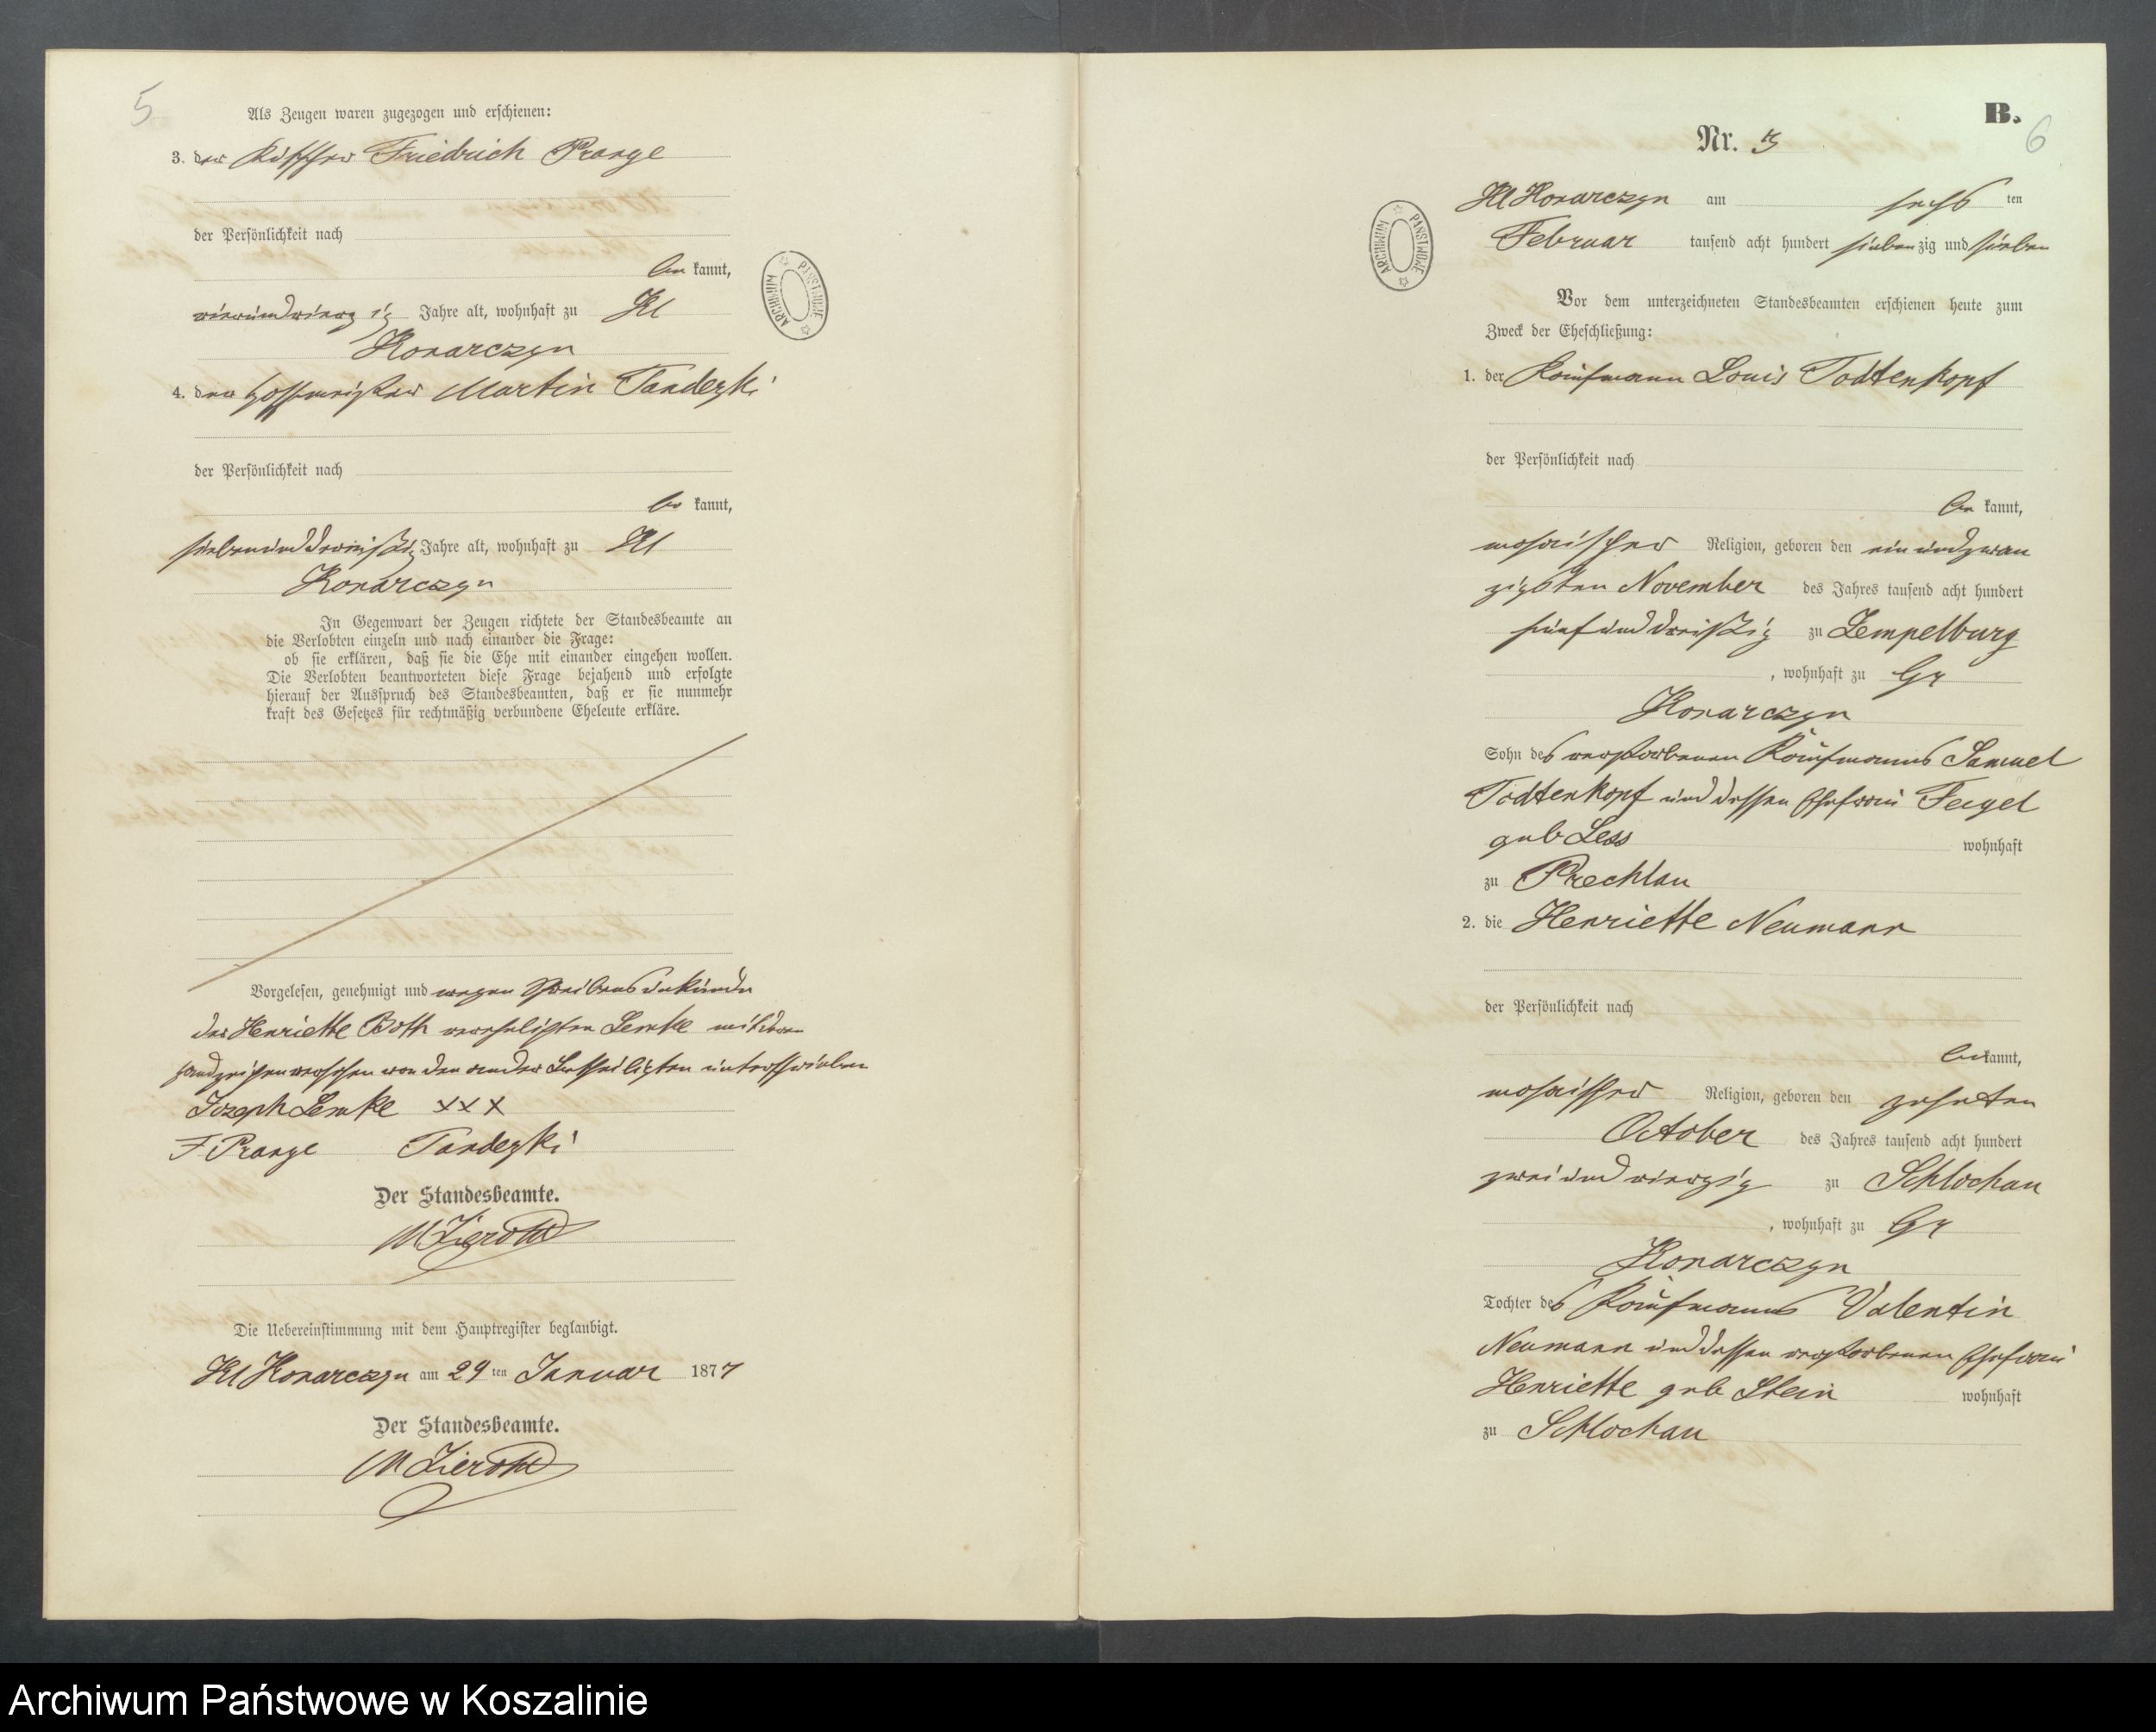 5
Als Zeugen waren zugezogen und erschienen:
3. der Friedrich Prange
der Persönlichkeit nach
be kannt,
vierundvierzig Jahre alt, wohnhaft zu Kl
Konarczyn
4. der Hofmeister Martin Tandezki
der Persönlichkeit nach
be kannt,
siebenunddreißig Jahre alt, wohnhaft zu Kl
Konarczyn
In Gegenwart der Zeugen richtete der Standesbeamte an
die Verlobten einzeln und nach einander die Frage:
ob sie erklären, daß sie die Ehe mit einander eingehen wollen.
Die Verlobten beantworteten diese Frage bejahend und erfolgte
hierauf der Ausspruch des Standesbeamten, daß er sie nunmehr
kraft des Gesetzes für rechtmäßig verbundene Eheleute erkläre.
Vorgelesen, genehmigt und wegen Schreibensunkunde
der Henriette Both verehelichten Lemke mit ihrem
Handzeichen versehen von den andern Betheiligten unterschrieben
Jozeph Lemke XXX
F. Prange Tandezki
Der Standesbeamte.
Die Uebereinstimmung mit dem Hauptregister beglaubigt.
Kl Konarczyn am 29 ten Januar 1877
Der Standesbeamte.
B.
6
Nr. 3
Kl Konarczyn am sechs ten
Februar tausend acht hundert siebenzig und sieben
Vor dem unterzeichneten Standesbeamten erschienen heute zum
Zweck der Eheschließung:
1. der Kaufmann Louis Todtenkopf
der Persönlichkeit nach
be kannt,
mosaischer Religion, geboren den ein und zwan
zigsten November des Jahres tausend acht hundert
fünf und dreißig zu Zempelburg
, wohnhaft zu Gr
Konarczyn
Sohn des verstorbenen Kaufmanns Samuel
Todtenkopf und dessen Ehefrau Feigel
geb Less wohnhaft
zu Prechlau
2. die Henriette Neumann
der Persönlichkeit nach
be kannt,
mosaischer Religion, geboren den zehnten
October des Jahres tausend acht hundert
zwei und vierzig zu Schlochau
, wohnhaft zu Gr
Konarczyn
Tochter des Kaufmanns Valentin
Neumann und dessen verstorbenen Ehefrau
Henriette geb Stein wohnhaft
zu Schlochau
ARCHIWUM PAŃSTWOWE
ARCHIWUM PAŃSTWOWE
Archiwum Państwowe w Koszalinie